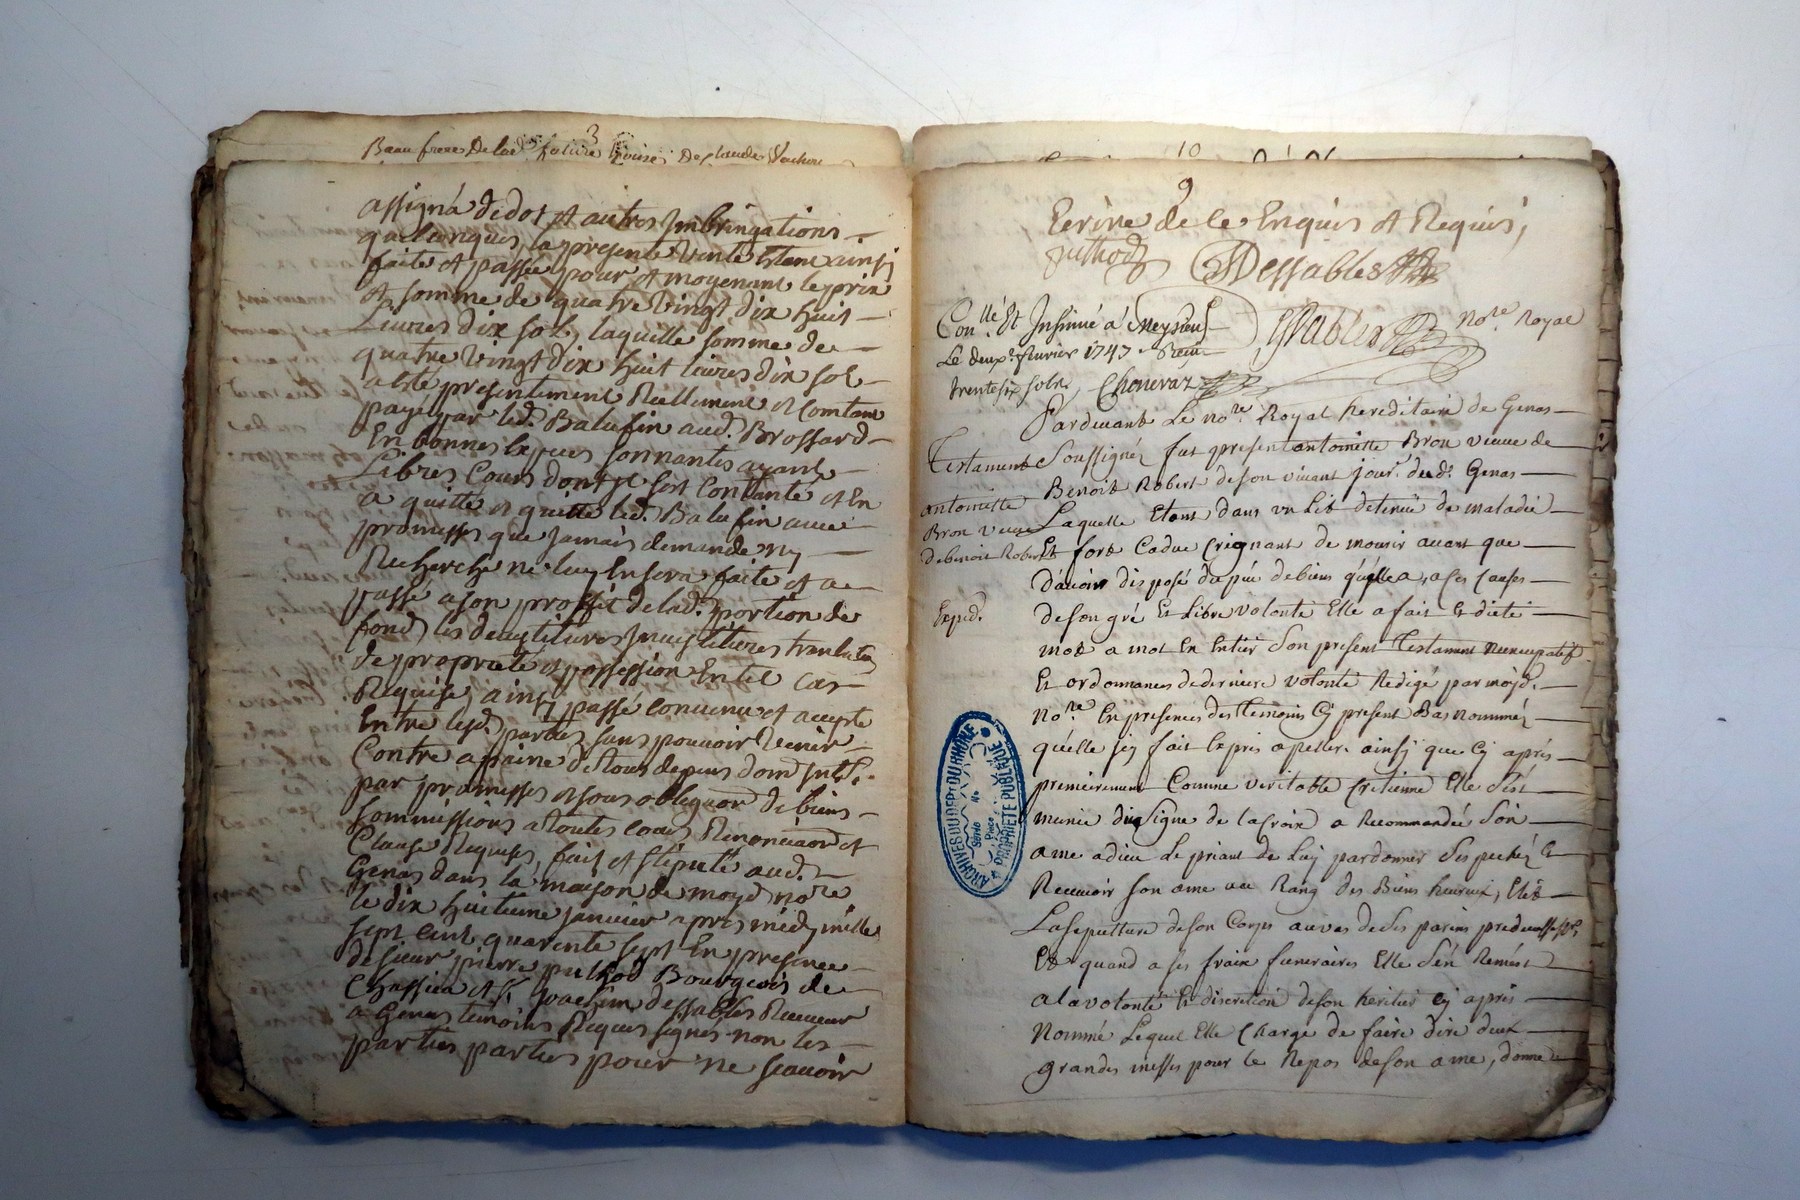 3
Beau frere De lad. future Epouse De Claude Vachon
assigné de dot et autres Imbringations
quelconques, la presente Vente Etant ainsy
faite et passée pour et moyenant le prix
et somme de quatre Vingt dix huit
Livres dix sols, laquelle somme de
quatre Vingt dix huit livres dix sols
a été presentement Réellement et Comtant
payé par led. Balufin aud. Brossard
En bonnes Especes sonnantes ayant
Libres Cours dont il s'est Contanté et En
a quitté et quitte led. Balufin avec
promesse que Jamais demande ny
Recherche ne luy En sera faite et a
passé a son proffit de lad. portion de
fond les
de proprieté et possession En tel Cas
Requise ainsy passé convenu et accepté
Entre lesd. parties sans pouvoir Venir
Contre a paine de tous depens dom. Int.
par promesses et sous obligaon de biens
soumissions a toutes cours Renonciaon et
Clause Requises, fait et stipulé aud.
Genas dans la maison de moyd. no.re
le dix huitieme janvier apres midy mille
sept cent quarente sept En presence
de sieur pierre puthod Bourgeois de
Chassieu et s.r Joachim dessables Receveur
a Genas temoins Requis signes non les
parties parties pour ne scavoir
10
9
Ecrire de le Enquis et Requis,
puthod Dessables
Conllé Et Insinué a Meysieu
Le deux.e fevrier 1747 Recu
trente six sols, Choueraz
Dessables No.re Royal
Pardevant Le no.re Royal hereditaire de Genas
Testament
Soussigné, fut present antoinette Bron veuve de
Benoit Robert de son vivant jour.r dud. Genas
antoinette
Bron veuve
de benoit Robert
Laquelle Etant dans un Lit detenue de maladie
Et fort Cadue Creignant de mourir avant que
D'avoir disposé du peu de biens qu'elle a, a ses Causes
Exped.
de son gré Et Libre volonté Elle a fait Et dicté
mot a mot En Entier son present Testament Nuncupatif
Et ordonnances de derniere volonté Redigé par moyd.
No.re En presences des temoins Cy present Bas nommés
qu'elle
premierement Comme veritable Cretienne Elle s'est
munie du signe de la Croix a Recommandée Son
ame a dieu Le priant de Luy pardonner ses pechez Et
Recevoir son ame au Rang des Biens heureux, Elit
La sepulture de son Corps au vas de ses parens predecesseurs,
Et quand a ses fraix funeraires Elle s'en Remest
a la volonté Et discretion de son heritier Cy apres
Nommé Lequel Elle Charge de faire dire deux
grandes messes pour le Repos de son ame, donne
ARCHIVES DU DEPT DU RHONE
Série
No
Pièce
PROPRIÉTÉ PUBLIQUE